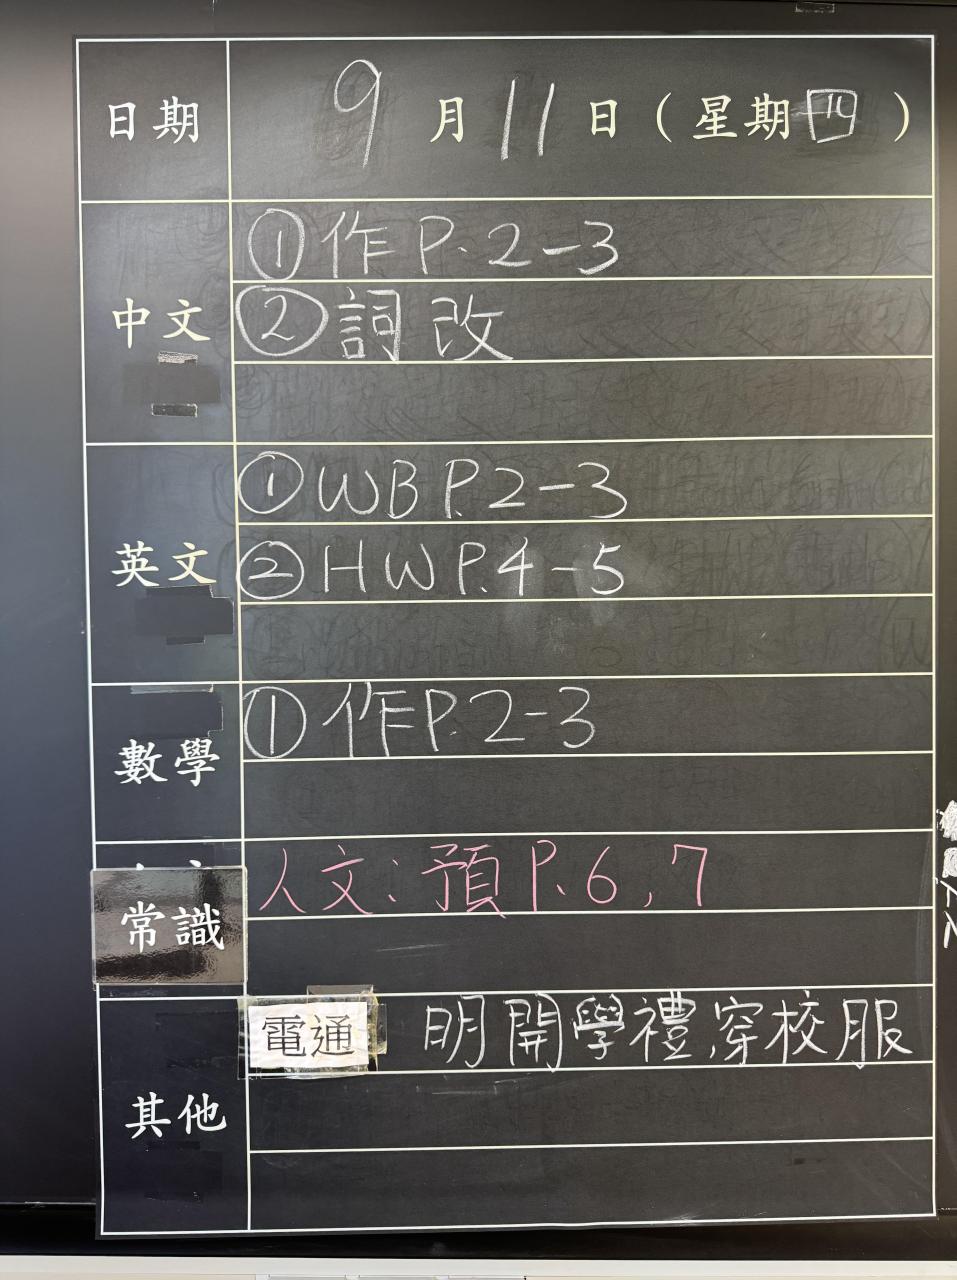 日期 9月11日（星期四）
中文
①作P.2-3
②詞改
英文
①WB P.2-3
②HW P.4-5
數學
①作P.2-3
常識
人文：預P.6,7
其他
電通 明開學禮,穿校服